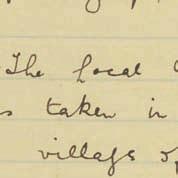 The local
s taken in
village of